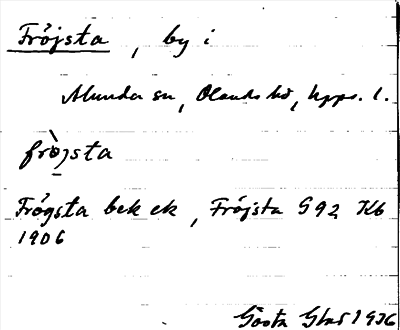 Fröjsta, by i
Alunda sn, Olands hd, Upps. l.
frò̱jsta
Frögsta bek ek, Fröjsta G92 Kb
1906
Gösta Glas 1936